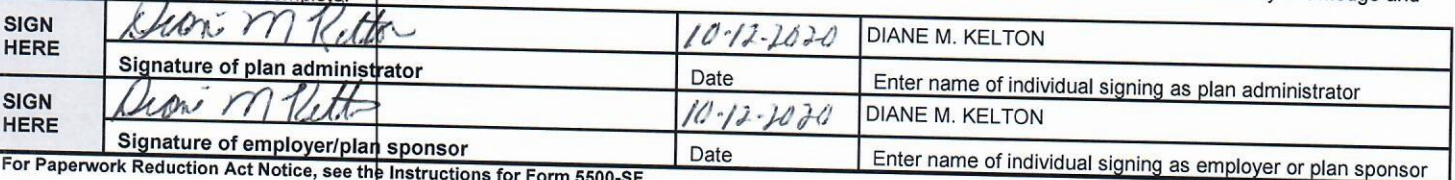 knowledge and
SIGN HERE Diane M Kelton 10-12-2020 DIANE M. KELTON
Signature of plan administrator Date Enter name of individual signing as plan administrator
SIGN HERE Diane M Kelton 10-12-2020 DIANE M. KELTON
Signature of employer/plan sponsor Date Enter name of individual signing as employer or plan sponsor
For Paperwork Reduction Act Notice, see the Instructions for Form 5500-SF